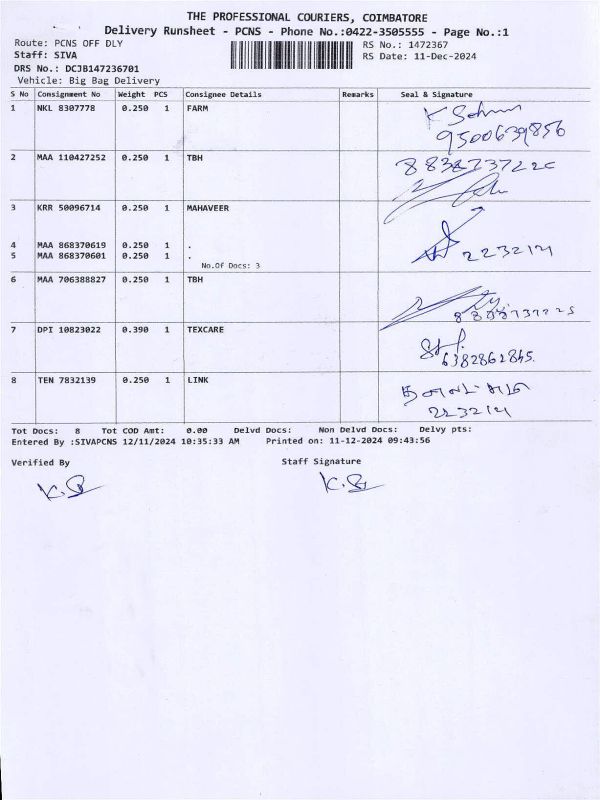 THE PROFESSIONAL COURIERS, COIMBATORE
Delivery Runsheet - PCNS - Phone No.:0422-3505555 - Page No.:1
Route: PCNS OFF DLY RS No.: 1472367
Staff: SIVA RS Date: 11-Dec-2024
DRS No.: DCJB147236701
Vehicle: Big Bag Delivery
S No Consignment No Weight PCS Consignee Details Remarks Seal & Signature
1 NKL 8307778 0.250 1 FARM
9500639856
2 MAA 110427252 0.250 1 TBH
3 KRR 50096714 0.250 1 MAHAVEER
4 MAA 868370619 0.250 1 .
5 MAA 868370601 0.250 1 . 2232121
No.Of Docs: 3
6 MAA 706388827 0.250 1 TBH
7 DPI 10823022 0.390 1 TEXCARE
6382862845.
8 TEN 7832139 0.250 1 LINK
2232121
Tot Docs: 8 Tot COD Amt: 0.00 Delvd Docs: Non Delvd Docs: Delvy pts:
Entered By :SIVAPCNS 12/11/2024 10:35:33 AM Printed on: 11-12-2024 09:43:56
Verified By Staff Signature